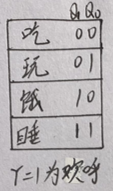 Q₁ Q₀
吃 0 0
玩 0 1
饿 1 0
睡 1 1
Y=1为欢呼